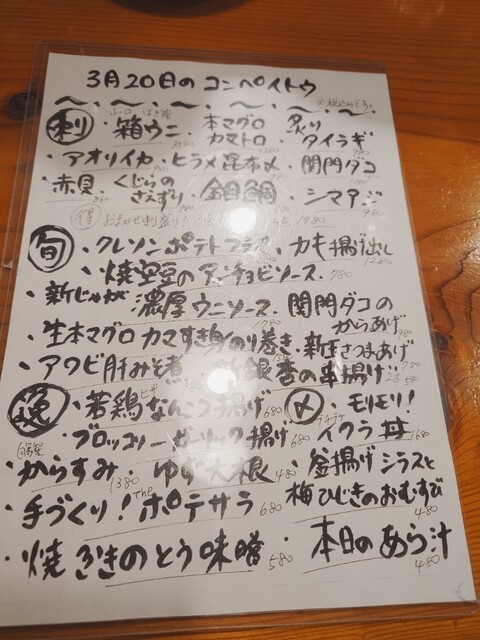 3月20日の コンペイトウ
刺 ・箱ウニ 本マグロ カマトロ 炙り タイラギ
・アオリイカ・ヒラメ昆布〆・関門ダコ
・赤貝・くじらの さえずり・金目鯛・シマアジ
得 おまかせ刺盛り! 1780
旬 ・クレソンポテトフライ・カキ揚げ出し 1280
・焼空豆のアンチョビソース 780
・新じゃが 濃厚ウニソース・関門ダコの からあげ
・生本マグロ カマすき身のり巻き・新玉さつまあげ
・アワビ肝みそ煮 銀杏の串揚げ
逸 ・若鶏なんこつ揚げ 680 〆 ・モリモリ! イクラ丼 1680
・ブロッコリーガーリック揚げ 680
自家製 からすみ 1380・ゆず大根 480・釜揚げシラスと 梅ひじきのおむすび 480
・手づくり! the ポテサラ 680
・焼ふきのとう味噌 580・本日のあら汁 480